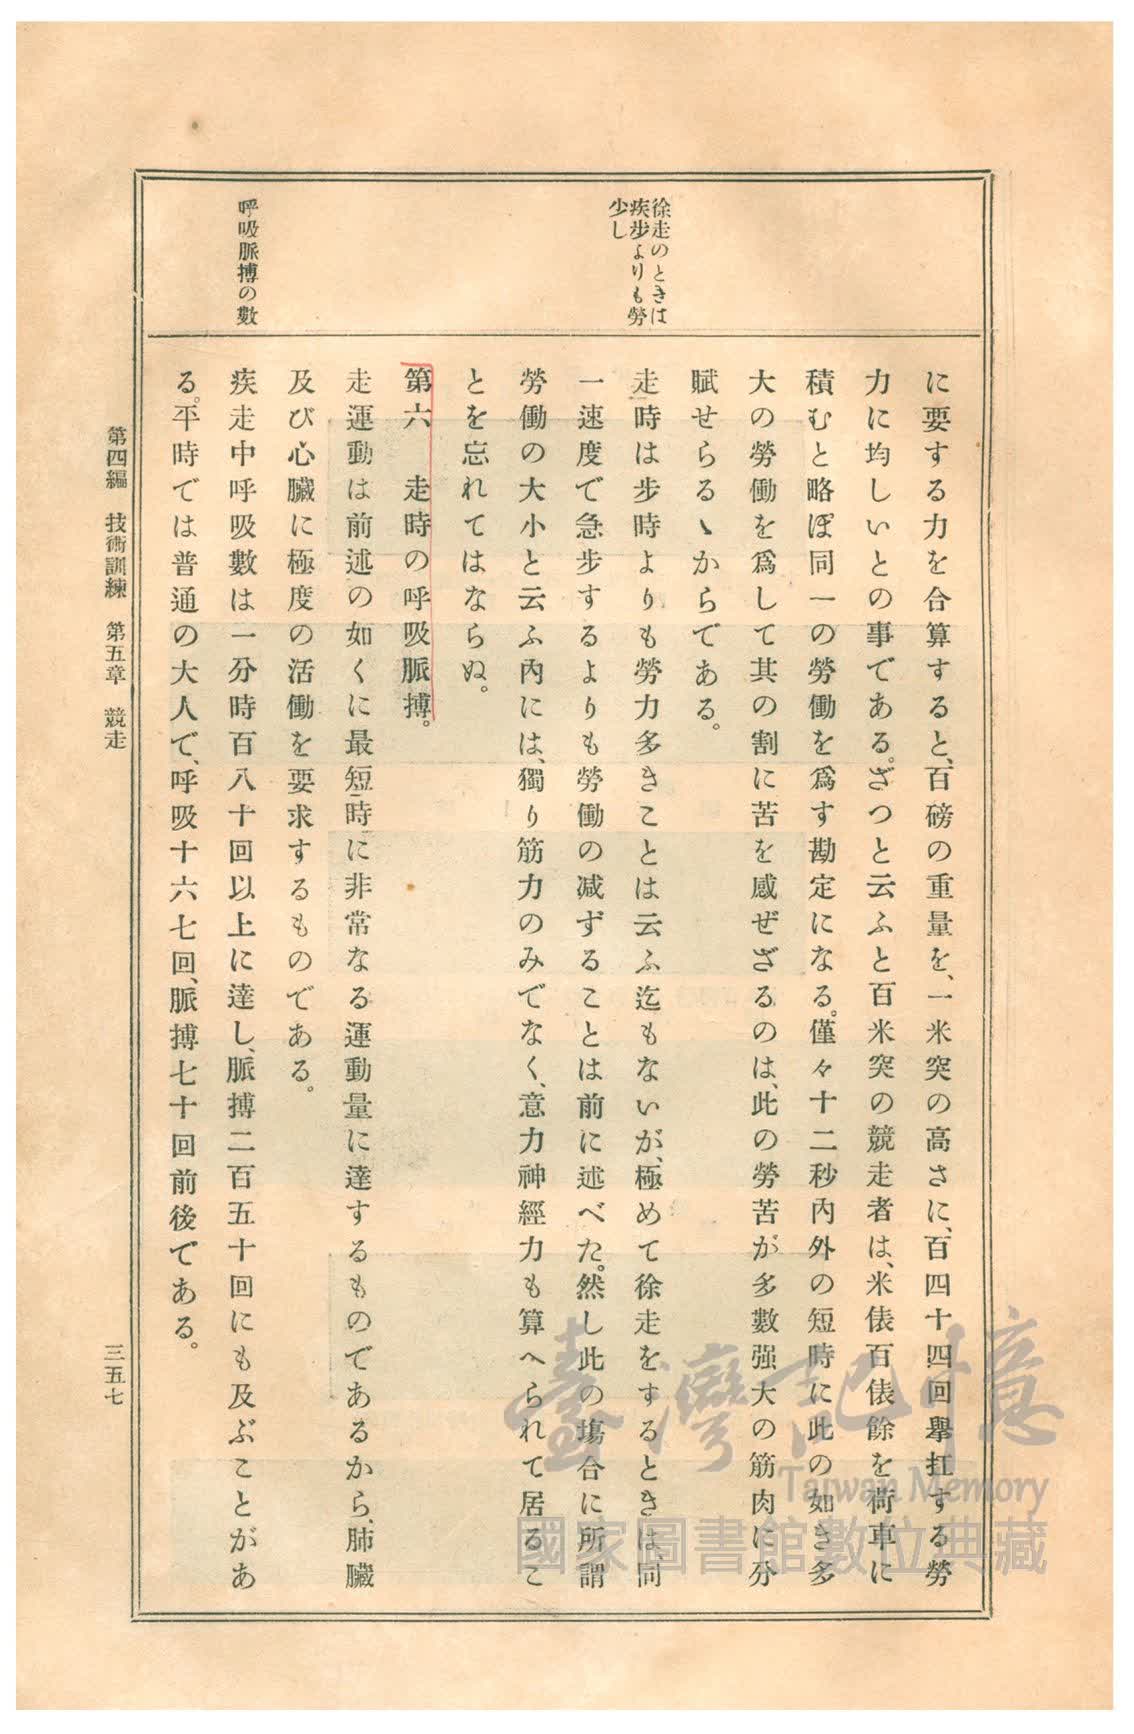 徐走のときは
疾步よりも勞
少し
呼吸脈搏の數
に要する力を合算すると、百磅の重量を、一米突の高さに、百四十四回擧扛する勞
力に均しいとの事である。ざつと云ふと百米突の競走者は、米俵百俵餘を荷車に
積むと略ぼ同一の勞働を爲す勘定になる。僅々十二秒內外の短時に此の如き多
大の勞働を爲して其の割に苦を感ぜざるのは、此の勞苦が多數强大の筋肉に分
賦せらるゝからである。
走時は步時よりも勞力多きことは云ふ迄もないが、極めて徐走をするときは、同
一速度で急步するよりも勞働の減ずることは前に述べた。然し此の塲合に所謂
勞働の大小と云ふ內には、獨り筋力のみでなく、意力神經力も算へられて居るこ
とを忘れてはならぬ。
第六　走時の呼吸脈搏。
走運動は前述の如くに最短時に非常なる運動量に達するものであるから、肺臟
及び心臟に極度の活働を要求するものである。
疾走中呼吸數は一分時百八十回以上に達し、脈搏二百五十回にも及ぶことがあ
る。平時では普通の大人で、呼吸十六七回、脈搏七十回前後である。
第四編　技術訓練　第五章　競走
三五七
臺灣記憶
Taiwan Memory
國家圖書館數位典藏